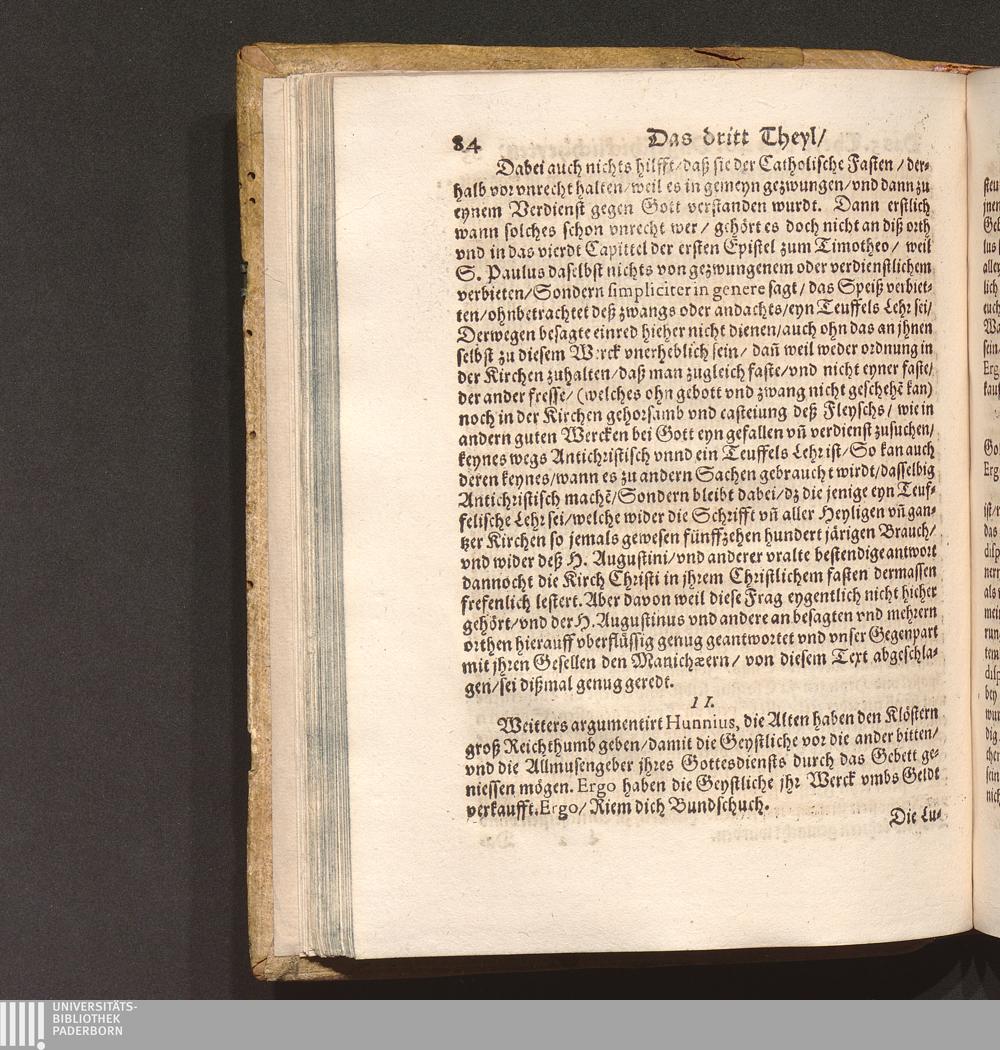 84 Das dritt Theyl/
Dabei auch nichts hilfft/daß sie der Catholische Fasten / der-
halb vor vnrecht halten/weil es in gemeyn gezwungen/vnd dann zu
eynem Verdienst gegen Gott verstanden wurdt. Dann erstlich
wann solches schon vnrecht wer / gehört es doch nicht an diß orth
vnd in das vierdt Capittel der ersten Epistel zum Timotheo / weil
S. Paulus daselbst nichts von gezwungenem oder verdienstlichem
verbieten/Sondern simpliciter in genere sagt/das Speiß verbiet-
ten/ohnbetrachtet deß zwangs oder andachts/eyn Teuffels Lehr sei/
Derwegen besagte einred hieher nicht dienen/auch ohn das an jhnen
selbst zu diesem Werck vnerheblich sein/ dañ weil weder ordnung in
der Kirchen zuhalten/daß man zugleich faste/vnd nicht eyner faste/
der ander fresse/ (welches ohn gebott vnd zwang nicht geschehẽ kan)
noch in der Kirchen gehorsamb vnd casteiung deß Fleyschs/ wie in
andern guten Wercken bei Gott eyn gefallen vñ verdienst zusuchen/
keynes wegs Antichristisch vnnd ein Teuffels Lehr ist/So kan auch
deren keynes/wann es zu andern Sachen gebraucht wirdt/dasselbig
Antichristisch machẽ/Sondern bleibt dabei/dz die jenige eyn Teuf-
felische Lehr sei/welche wider die Schrifft vñ aller Heyligen vñ gan-
tzer Kirchen so jemals gewesen fünffzehen hundert järigen Brauch/
vnd wider deß H. Augustini/vnd anderer vralte bestendige antwort
dannocht die Kirch Christi in jhrem Christlichem fasten dermassen
frefenlich lestert. Aber davon weil diese Frag eygentlich nicht hieher
gehört/vnd der H. Augustinus vnd andere an besagten vnd mehrern
orthen hierauff vberflüssig genug geantwortet vnd vnser Gegenpart
mit jhren Gesellen den Manichæern/ von diesem Text abgeschla-
gen/sei dißmal genug geredt.
11.
Weitters argumentirt Hunnius, die Alten haben den Klöstern
groß Reichthumb geben/damit die Geystliche vor die ander bitten/
vnd die Allmusengeber jhres Gottesdiensts durch das Gebett ge-
niessen mögen. Ergo haben die Geystliche jhr Werck vmbs Geldt
verkaufft. Ergo/ Riem dich Bundschuch.
Die Lu-
UNIVERSITÄTS-
BIBLIOTHEK
PADERBORN